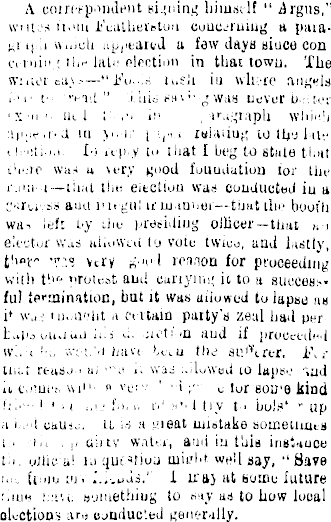 A correspondent signing himself "Argus,"
writes from Featherston concerning a para-
graph which appeared a few days since con
cerning the late election in that town. The
writer says—"Fools rush in where angels
fear to tread." This saying was never better
than in paragraph which
appeared in your paper relating to the late
election. In reply to that I beg to state that
there was a very good foundation for the
rumor—that the election was conducted in a
careless and irregular manner—that the booth
was left by the presiding officer—that an
elector was allowed to vote twice, and lastly,
there was very good reason for proceeding
with the protest and carrying it to a success-
ful termination, but it was allowed to lapse as
it was thought a certain party's zeal had per-
haps outrun his discretion and if proceeded
with he would have been the sufferer. For
that reason alone it was allowed to lapse and
it comes with a very bad grace for some kind
friend to and try to bolster up
a bad cause. It is a great mistake sometimes
to stir up dirty water, and in this instance
the official in question might well say, "Save
me from my friends." I may at some future
time have something to say as to how local
elections are conducted generally.